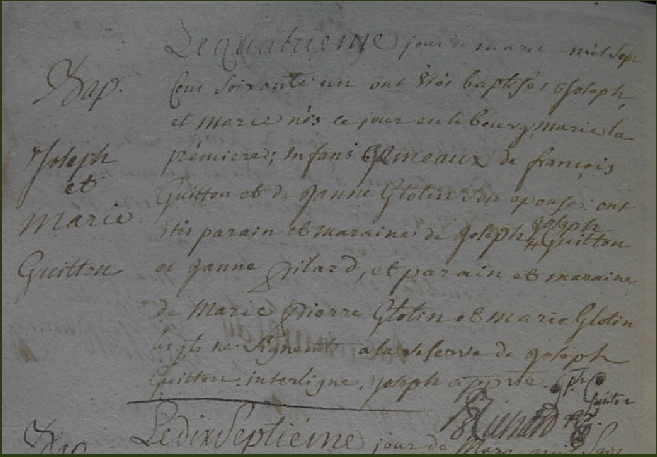 Le quatrieme jour de mars mil sept
Bap. Cens soixante un ont étés baptisés Joseph
et marie nés ce jour en le bourg marie la
Joseph première, Enfans Gemeaux de françois
et Guitton et de Janne Glotin Son epouse ont
Joseph
marie étés parain et maraine de Joseph Guitton
Guitton et Janne Pilard, et parain et maraine
de Marie Pierre Glotin et marie Glotin
ne Signent a la reserve de Joseph
Guitton interligne, Joseph approuvé
jph Guitton
Le dix Septiéme jour de Mars
Bap